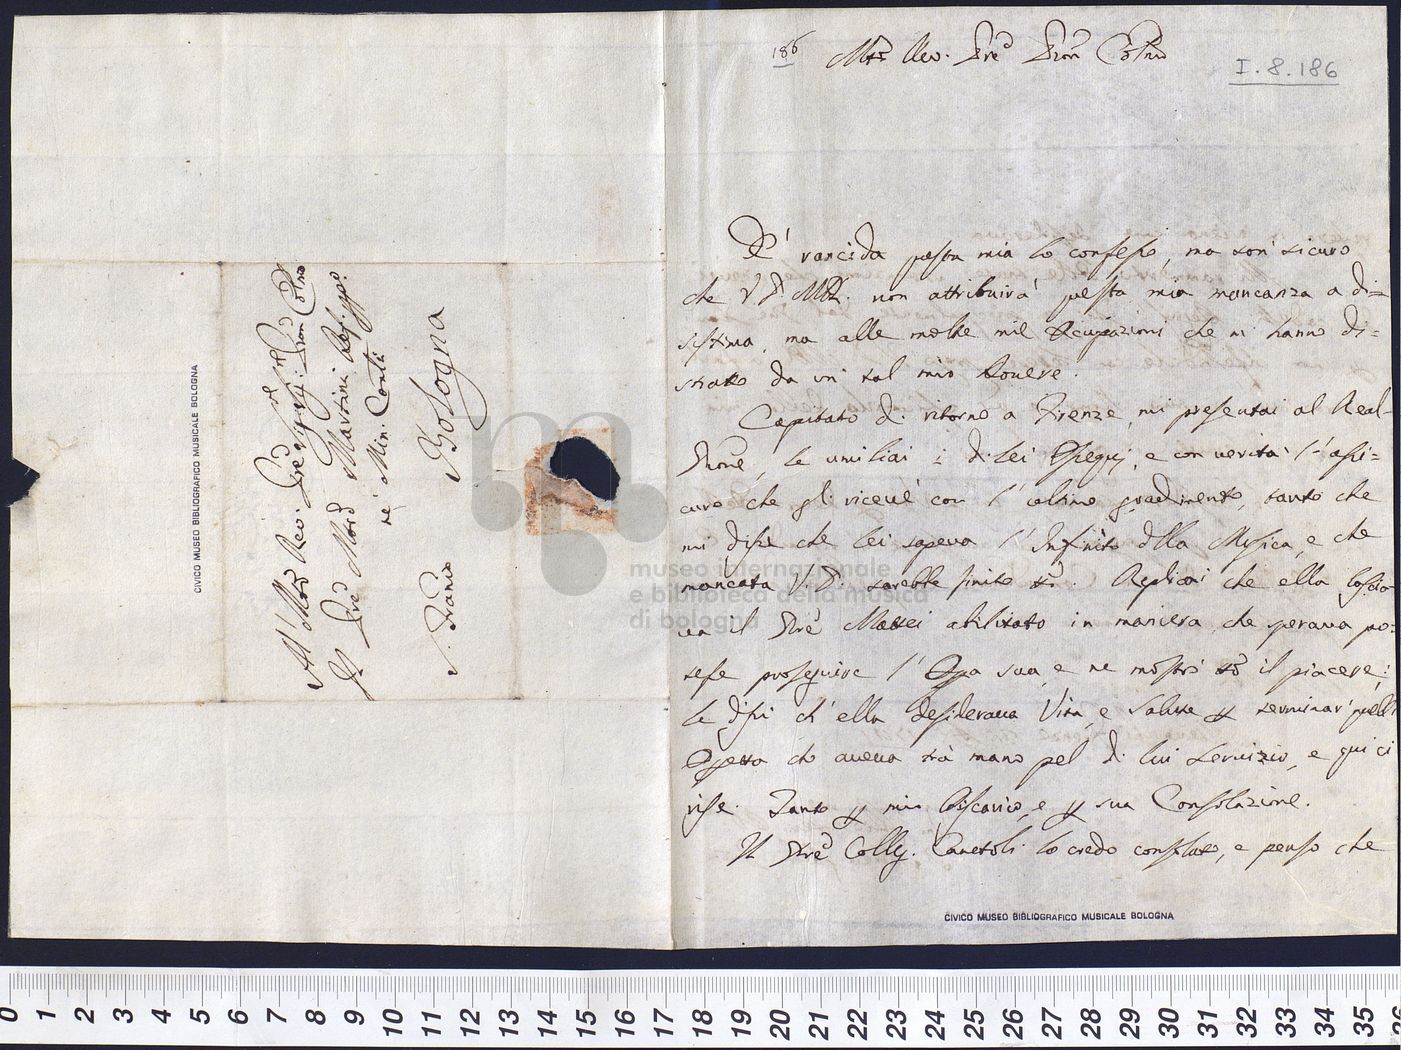 186
Mto Rev. Pre Pron Colmo
I.8.186
E' rancida questa mia lo confesso, ma son' sicuro
che V.P. M.R. non attribuirà questa mia mancanza a di=
sistima, ma alle molte mie Ocupazioni che mi hanno di=
stratto da un' tal mio dovere.
Capitato di ritorno a Firenze, mi presentai al Real-
Prone, le umiliai i di lei Ossequj, e con verità l'assi=
curo che gli riceuè con l'ultimo gradimento, tanto che
mi disse che lei sapeva l'Infinito della Musica, e che
mancata V.P. sarebbe finito tto. Replicai che ella lascia-
va il Pre Mattei abilitato in maniera, che sperava po=
tesse proseguire l'Opa sua, e ne mostrò tto il piacere;
le dissi ch'ella desiderava Vita, e Salute per terminar' quell'
Opetta che aveva trà mano pel di lui servizio, e qui ci
rise. Tanto per mio discarico, e per sua Consolazione.
Il Pre Colleg. Canetoli lo credo consolato, e penso che
CIVICO MUSEO BIBLIOGRAFICO MUSICALE BOLOGNA
Al Molto Rev. Pre Pron Colmo
Il Pre Mord Martini
nè Min. Conti
Bologna
S. Franco
CIVICO MUSEO BIBLIOGRAFICO MUSICALE BOLOGNA
museo internazionale
e biblioteca della musica
di bologna
0 1 2 3 4 5 6 7 8 9 10 11 12 13 14 15 16 17 18 19 20 21 22 23 24 25 26 27 28 29 30 31 32 33 34 35 36